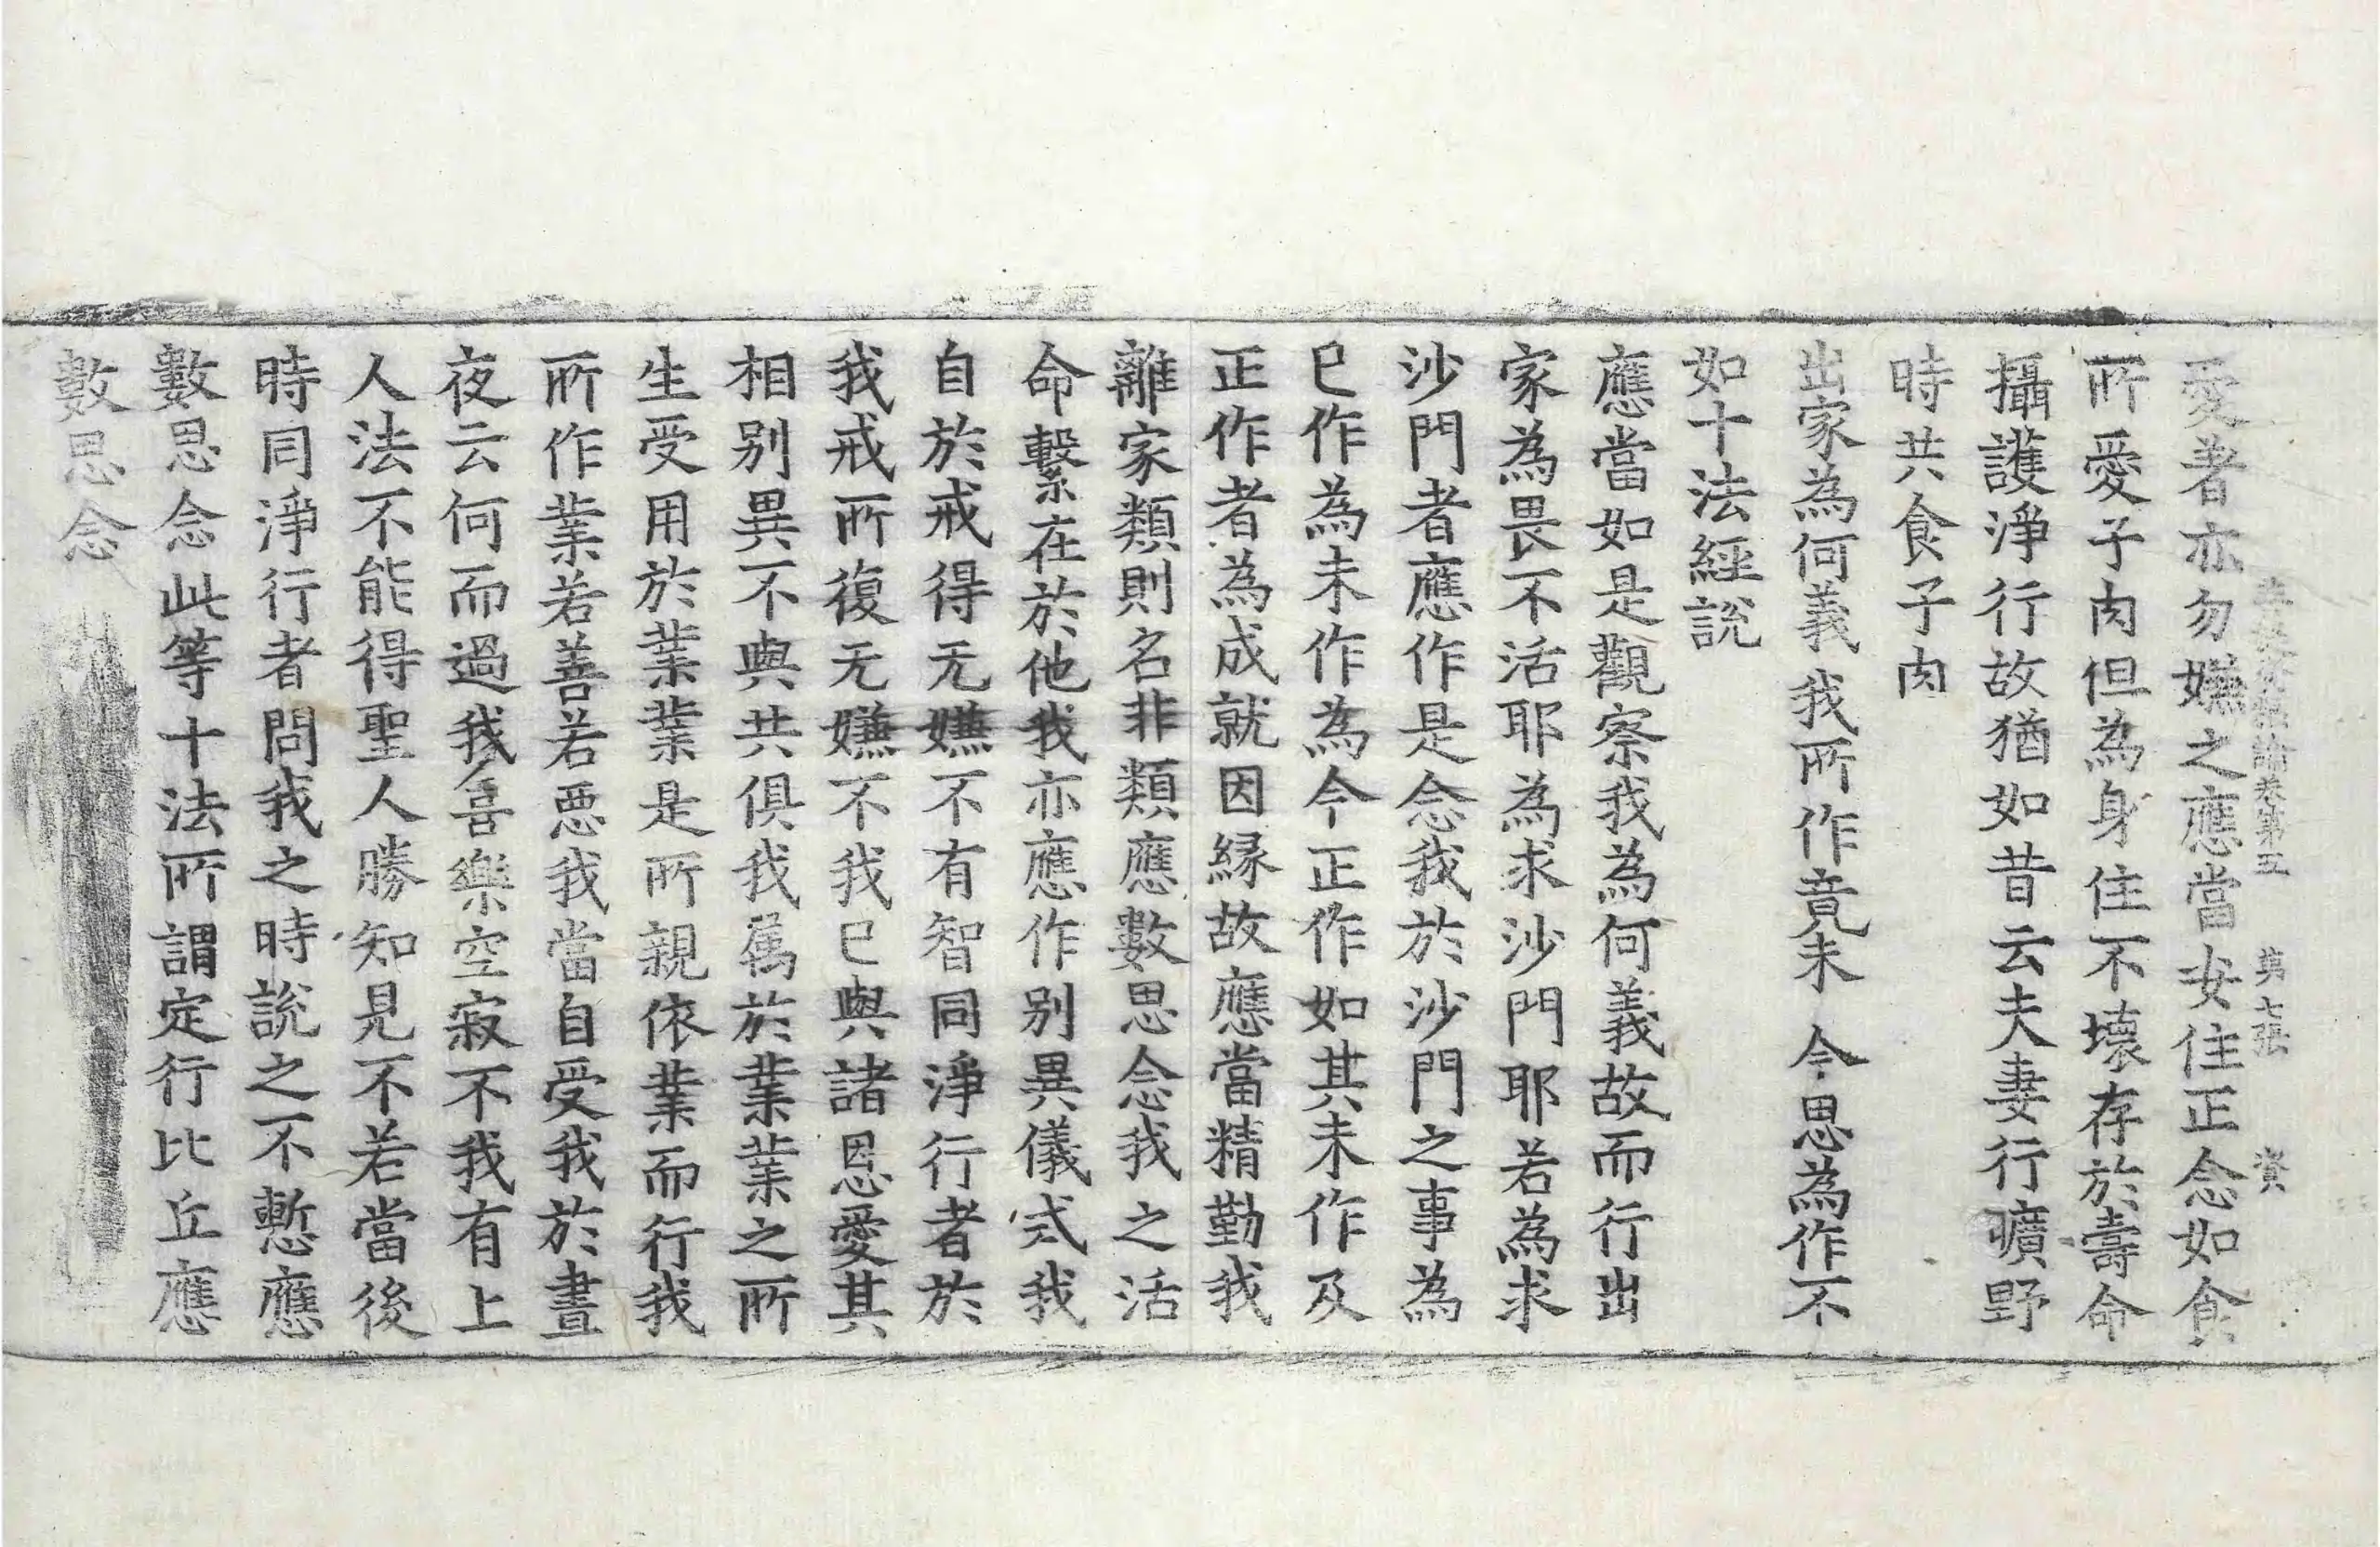 論卷第五　第七張　資
愛著亦勿嫌之應當安住正念如食
所愛子肉但為身住不壞存於壽命
攝護淨行故猶如昔云夫妻行曠野
時共食子肉
出家為何義　我所作竟未　今思為作不
如十法經說
應當如是觀察我為何義故而行出
家為畏不活耶為求沙門耶若為求
沙門者應作是念我於沙門之事為
已作為未作為今正作如其未作及
正作者為成就因緣故應當精勤我
離家類則名非類應數思念我之活
命繫在於他我亦應作別異儀式我
自於戒得无嫌不有智同淨行者於
我戒所復无嫌不我已與諸恩愛其
相別異不與共俱我属於業業之所
生受用於業業是所親依業而行我
所作業若善若惡我當自受我於晝
夜云何而過我喜樂空寂不我有上
人法不能得聖人勝知見不若當後
時同淨行者問我之時說之不慙應
數思念此等十法所謂定行比丘應
數思念